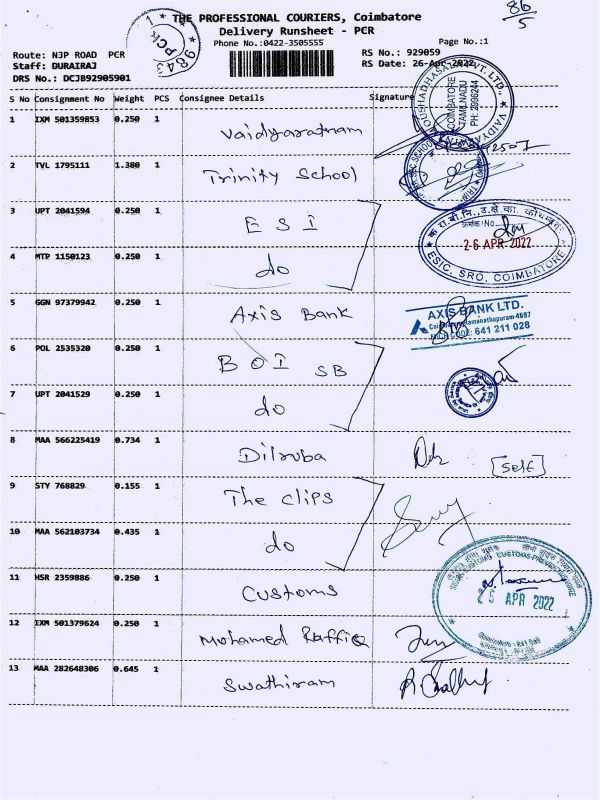 86
5
THE PROFESSIONAL COURIERS, Coimbatore
Delivery Runsheet - PCR
Phone No.:0422-3505555
Page No.:1
* 1 *
PCR
* 9843
Route: NJP ROAD PCR
Staff: DURAIRAJ
DRS No.: DCJB92905901
RS No.: 929059
RS Date: 26-Apr-2022
S No Consignment No Weight PCS Consignee Details Signature
1 IXM 501359853 0.250 1 Vaidyaratnam
COIMBATORE
TAMILNADU
PH: 2996244
2 TVL 1795111 1.380 1 Trinity School
3 UPT 2041594 0.250 1 E S I
4 MTP 1150123 0.250 1 do
26 APR 2022
ESIC, SRO, COIMBATORE
5 GGN 97379942 0.250 1 Axis Bank
AXIS BANK LTD.
MICR CODE: 641 211 028
6 POL 2535320 0.250 1 BOI SB
7 UPT 2041529 0.250 1 do
8 MAA 566225419 0.734 1 Dilruba
[Self]
9 STY 768829 0.155 1 The clips
10 MAA 562103734 0.435 1 do
11 HSR 2359886 0.250 1 Customs
APR 2022
12 IXM 501379624 0.250 1 Mohamed Raffiq
13 MAA 282648306 0.645 1 Swathiram